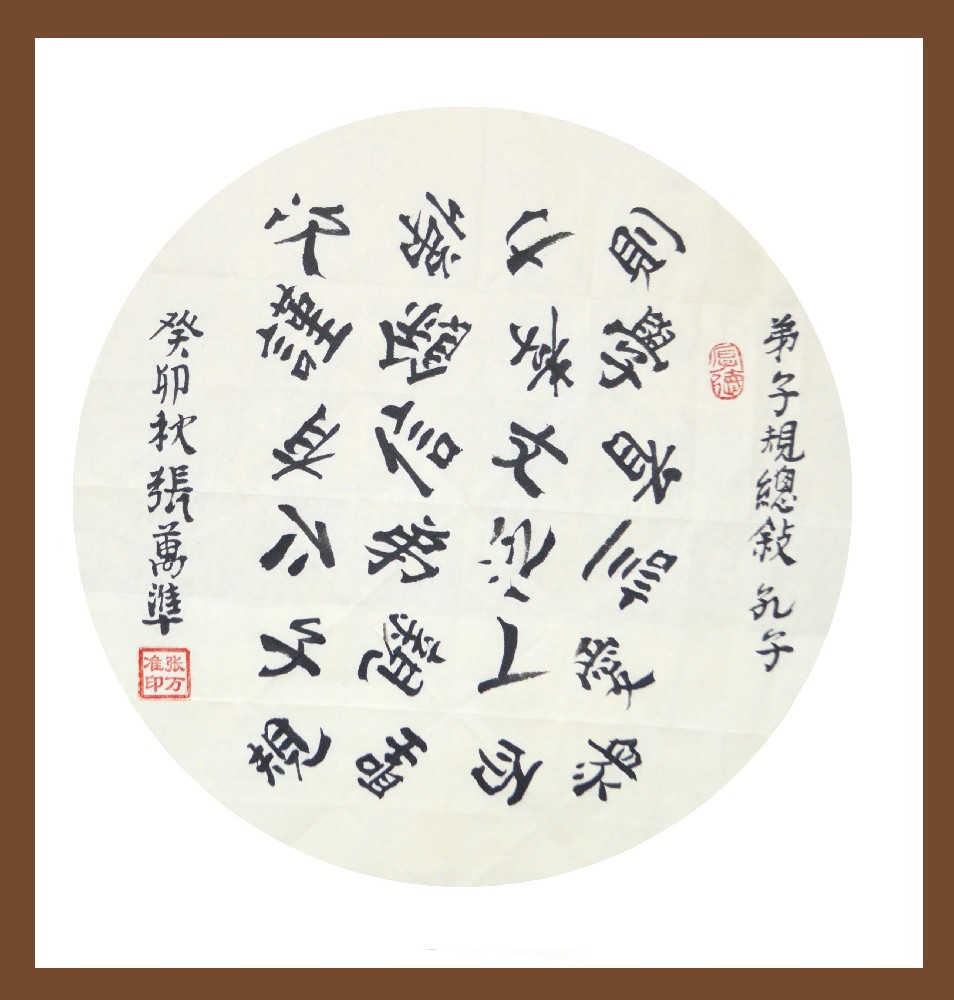 弟子規總敍 孔子
則學首訓愛眾
力孝文泛人而
弟餘信弟親聖
次謹有仁子規
癸卯秋張萬準
张万准印